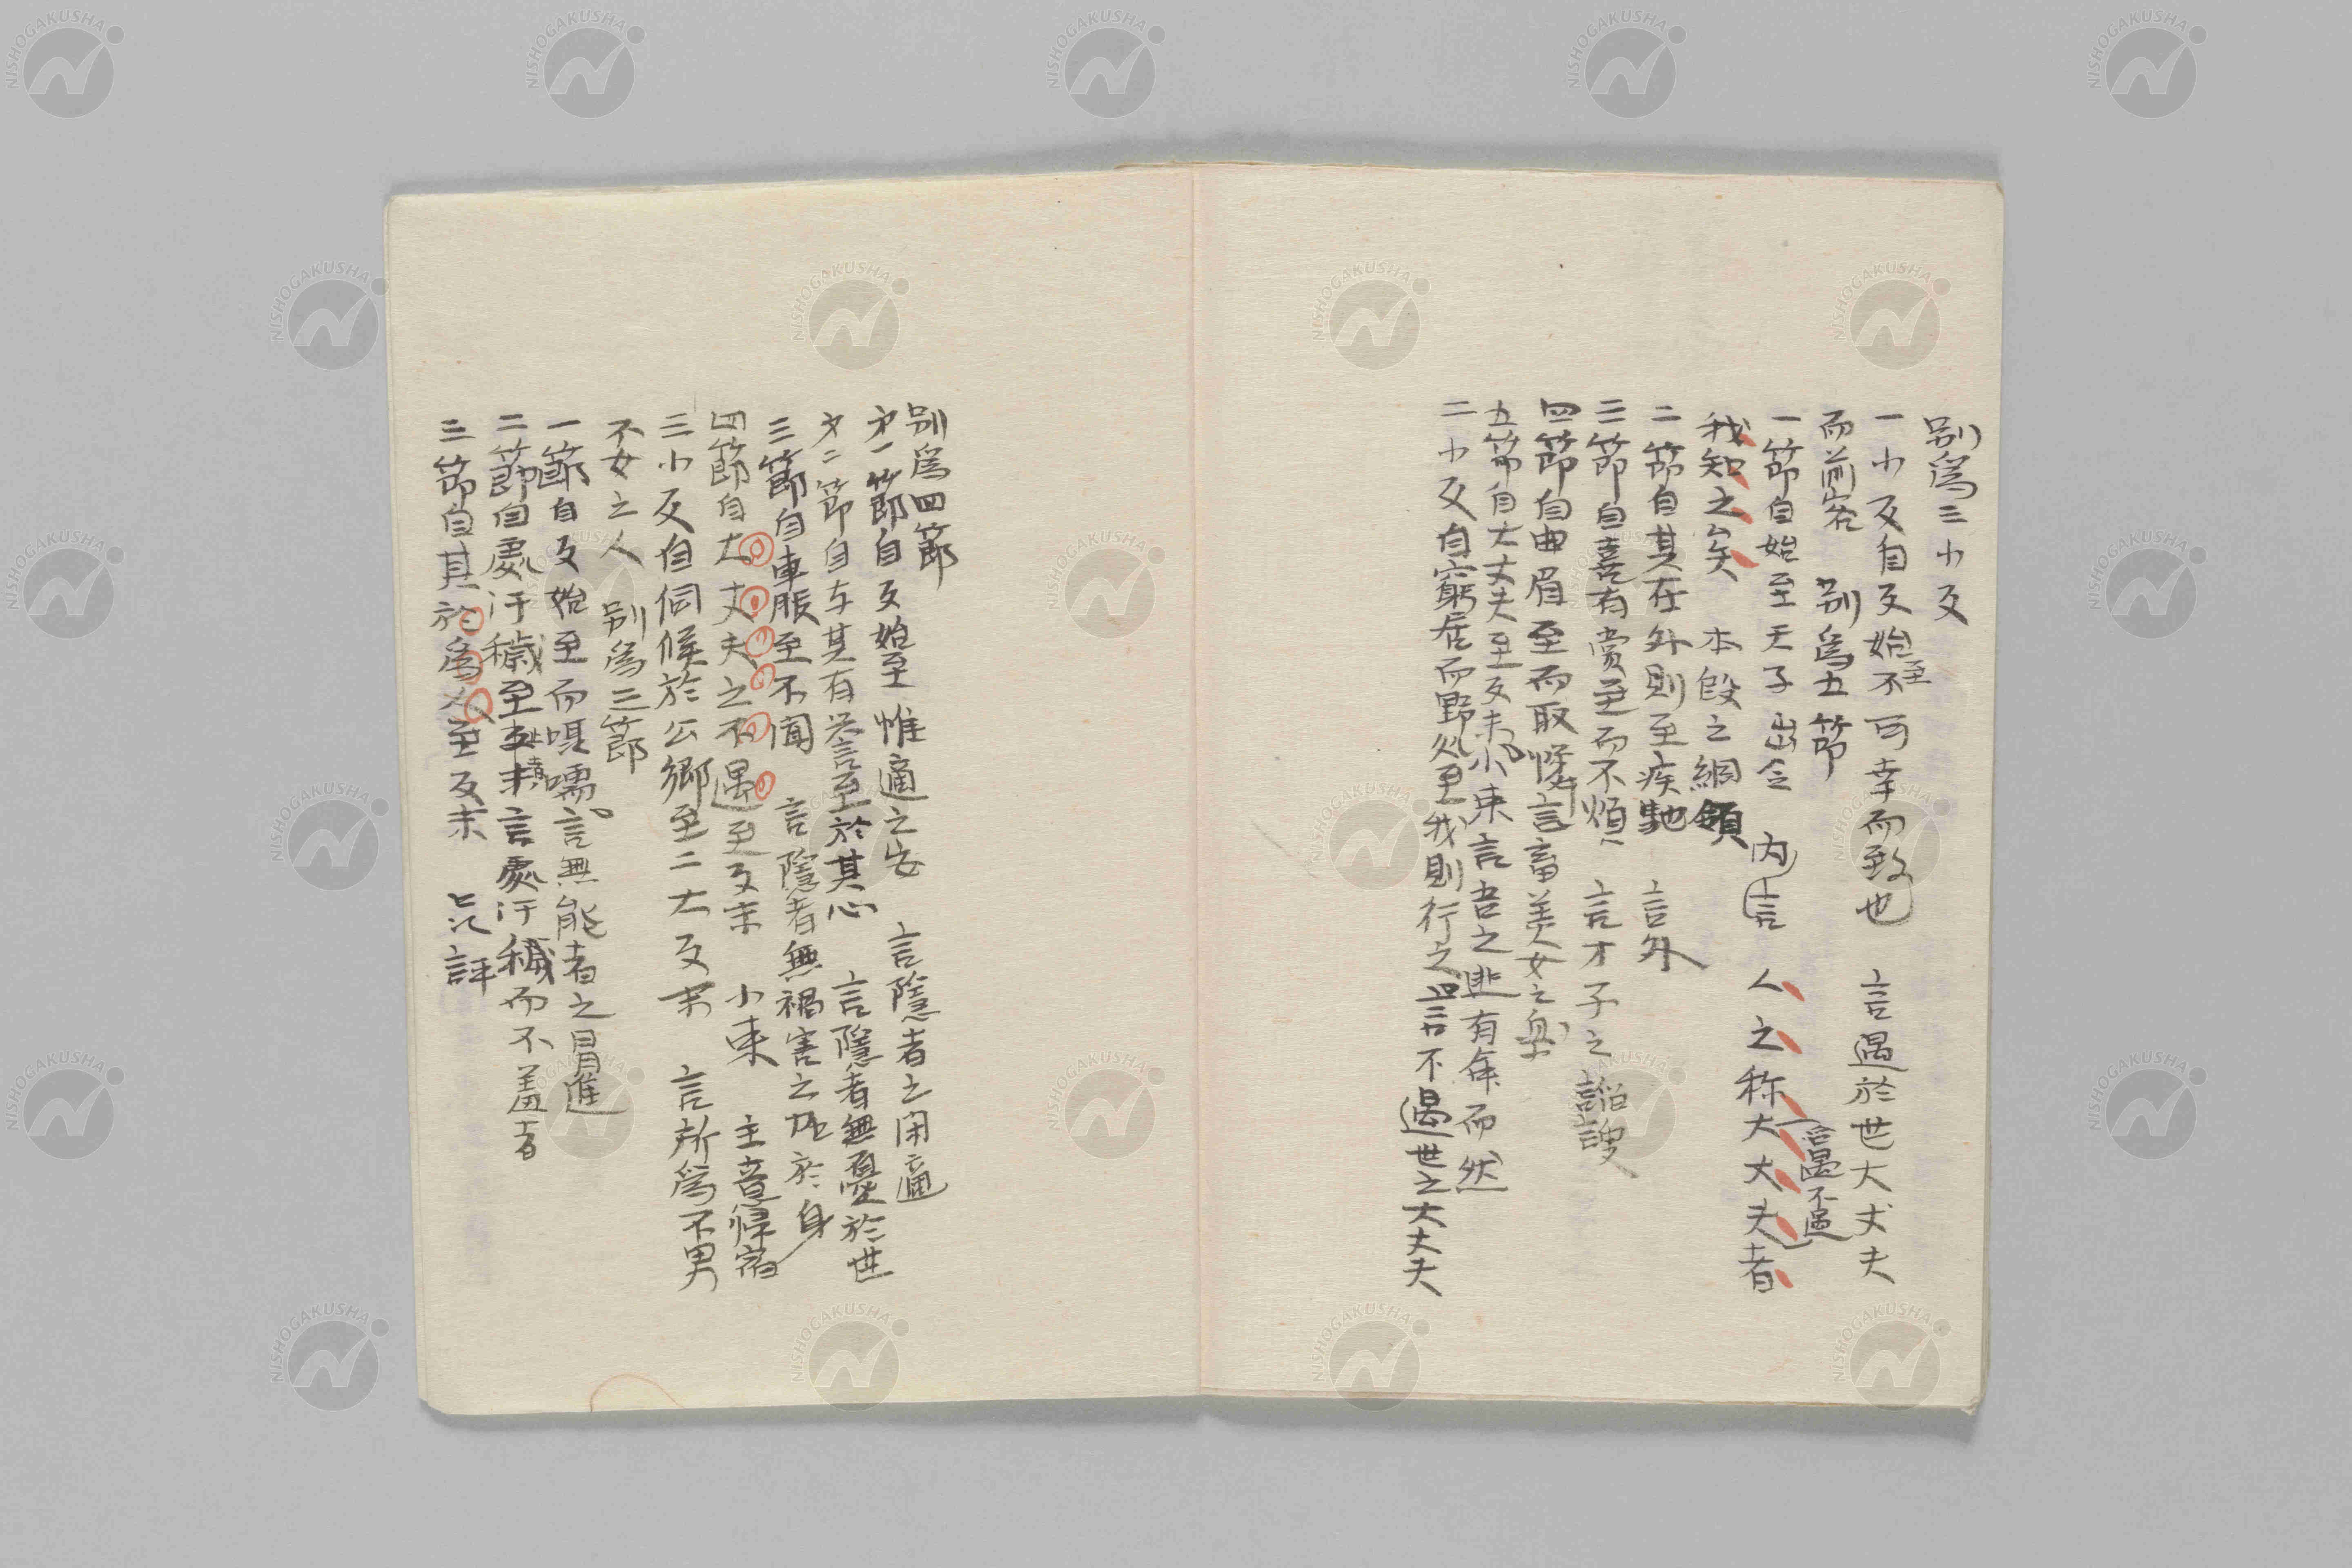 別爲三小反
一小反自反始至不可幸而致也 言遇於世大丈夫
而前客 別爲五節
一節自始至天子出令 内言 人之称大丈夫者
合遇不遇
我知之矣 本段之綱領
二節自其在外則至疾馳 言外
三節自喜有賞至而不煩 言才子之諂諛
四節自曲眉至而取怜 言畜美女之楽
五節自大丈夫至反末 小束 言吾之非有年而然
二小反自窮居而野処至我則行之 言不遇世之大丈夫
別爲四節
才一節自反始至惟適之安 言隱者之閑適
才二節自与其有誉言至於其心 言隱者無憂於世
三節自車服至不聞 言隱者無禍害之加於身
四節自大丈夫之不遇至反末 小束 主意帰宿
三小反自伺候於公卿至二大反末 言所爲不男
不女之人 別爲三節
一節自反始至而囁嚅 言無能者之冒進
二節自處汙穢至 言處汙穢而不羞者
三節自其於爲人至反末 品評
NISHOGAKUSHA